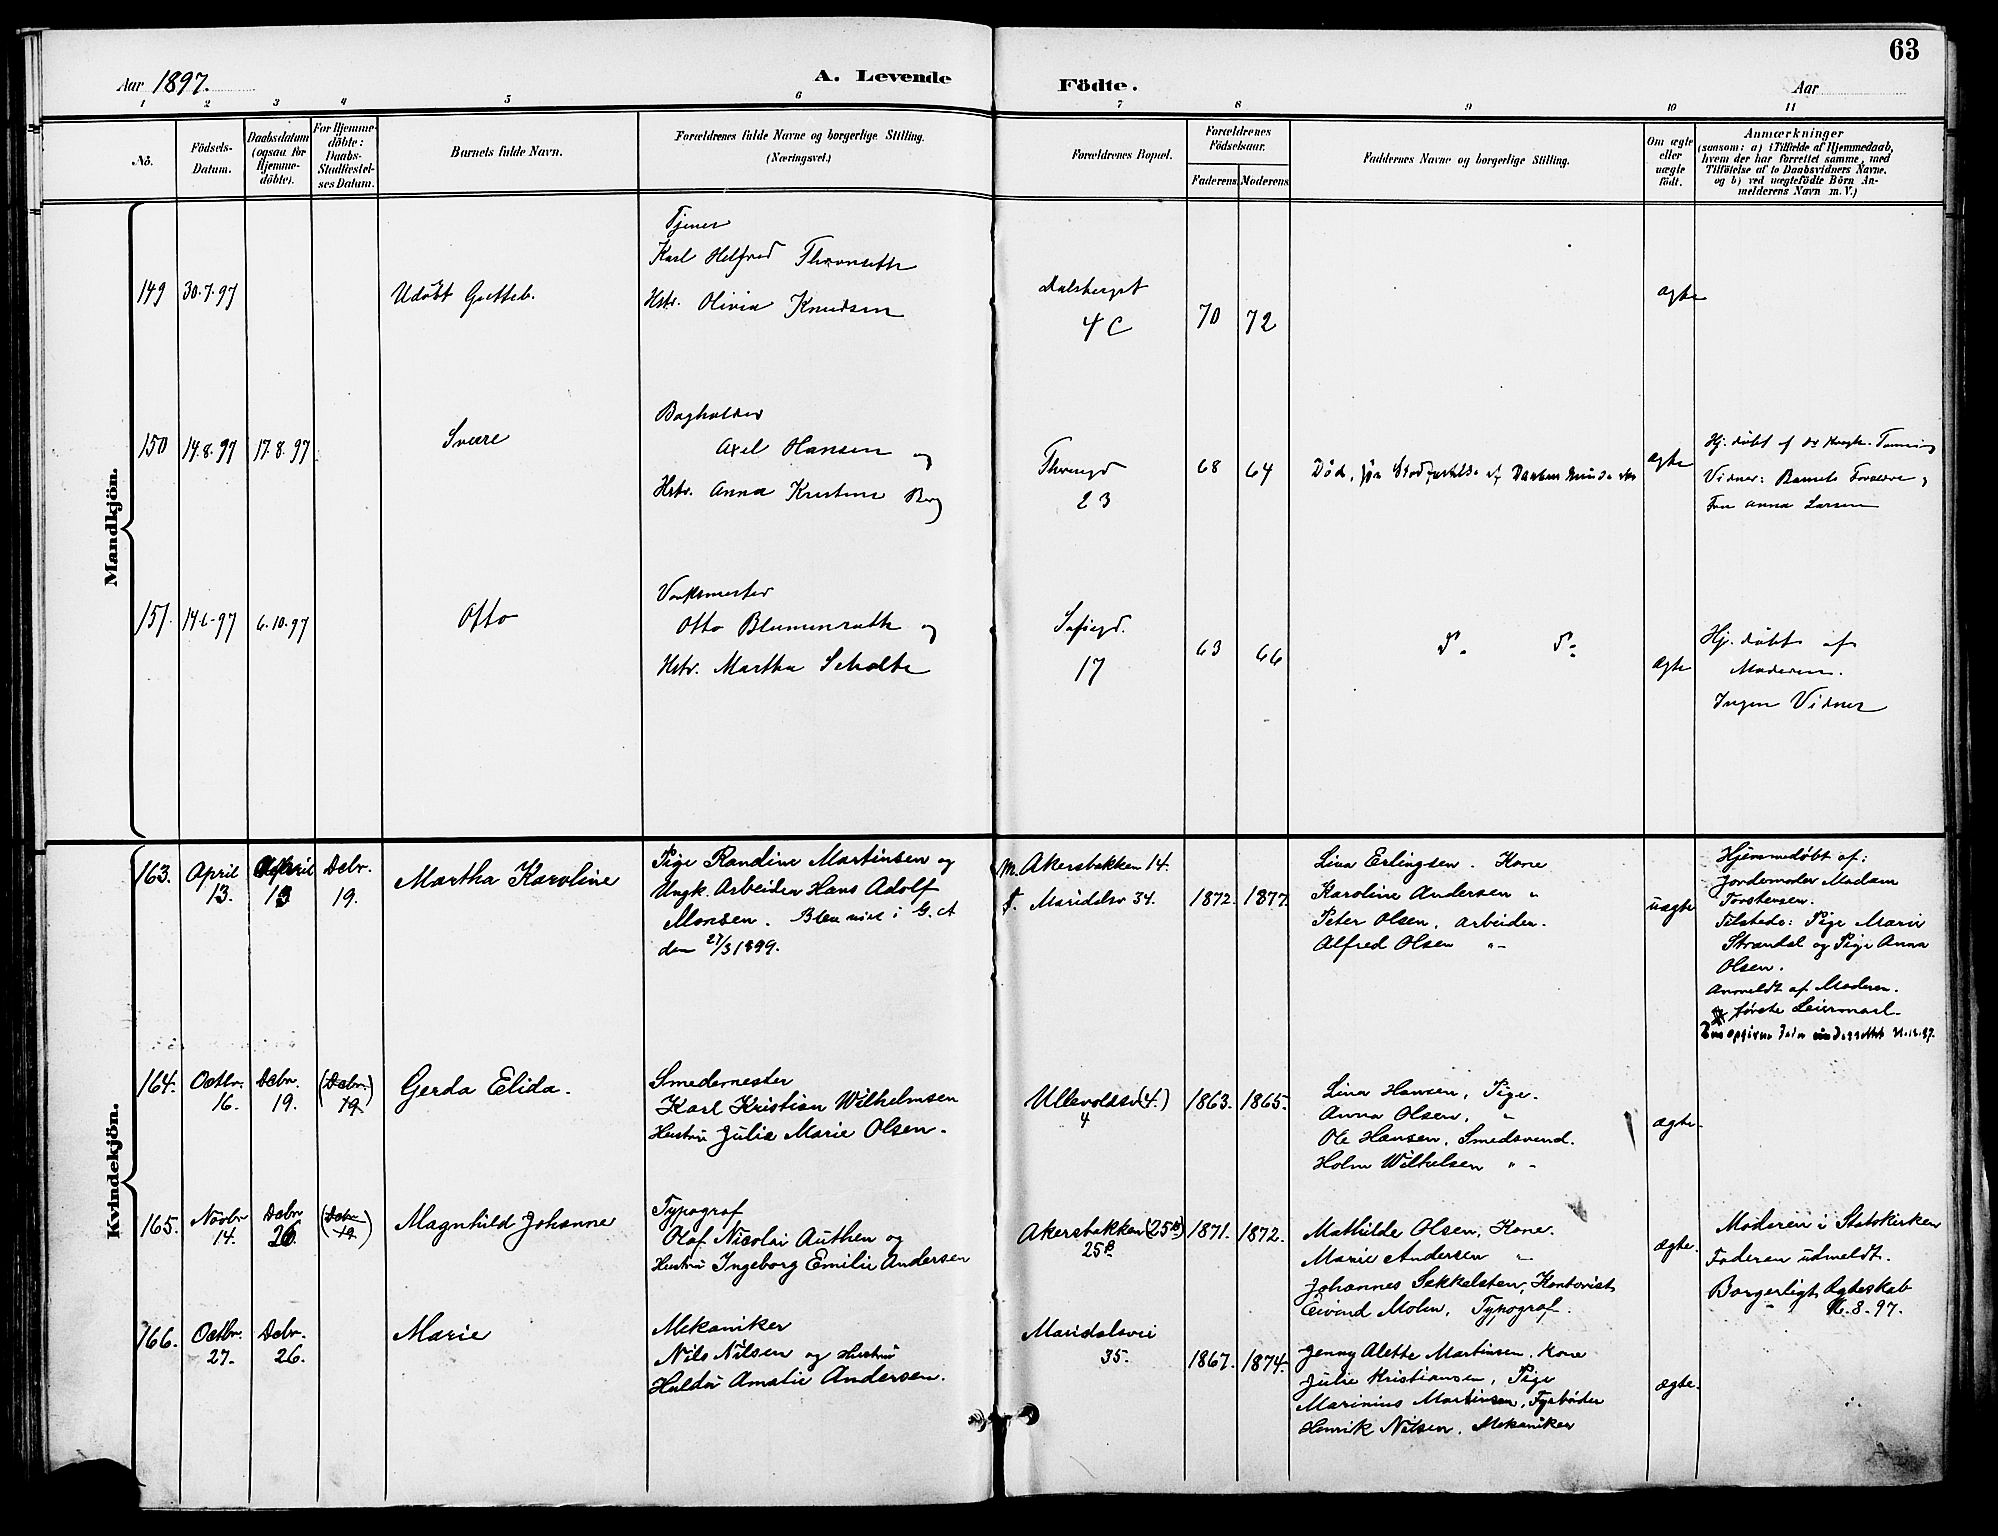 63
Aar 1897.
A. Levende
Födte.
Aar
1 2 3 4 5 6 7 8 9 10 11
No.
Födsels-
Datum.
Daabsdatum
(ogsaa for
Hjemme-
döbte).
For Hjemme-
döbte:
Daabs-
Stadfæstel-
ses Datum.
Barnets fulde Navn.
Forældrenes fulde Navne og borgerlige Stilling.
(Næringsvei.)
Forældrenes Bopæl.
Forældrenes
Födselsaar.
Faderens. Moderens.
Faddernes Navne og borgerlige Stilling.
Om ægte
eller
uægte
födt.
Anmærkninger
(saasom: a) i Tilfælde af Hjemmedaab,
hvem der har forrettet samme, med
Tilföielse af to Daabsvidners Navne,
og b) ved uægtefödte Börn An-
melderens Navn m. V.)
Mandkjön.
149 30.7.97 Udöbt Gutteb.
Tjener
Karl Helfred Thronseth
Hstr. Olivia Knudsen
Dalsberget
4 C
70 72
ægte
150 14.8.97 17.8.97 Sverre
Bogholder
Axel Hansen og
Hstr. Anna Kristine Berg
Throngd
23
68 64
Død, før Stadfæstelse af Daaben kunde
ægte
Hj. døbt af
Vidner: Barnets Forældre,
Fru Anna Larsen
151. 14.6.97 6.10.97 Otto
Værksmester
Otto Blumenrath og
Hstr. Martha Scholte
Sofiegd.
17
63 66
ægte
Hj. døbt af
Moderen.
Ingen Vidner
Kvindekjön.
163. April 13. April 13 Debr. 19. Martha Karoline
Pige Randine Martinsen og
Ungk. Arbeider Hans Adolf
Monsen. Blev viet i G. A
den 27/3 1899.
M. Akersbakken 14.
F. Maridalsv 34.
1872. 1877.
Lina Erlingsen. Kone
Karoline Andersen "
Peter Olsen, arbeider.
Alfred Olsen "
uægte
Hjemmedøbt af:
Jordemoder Madam
Torstensen.
Tilstede: Pige Marie
Strandal og Pige Anna
Olsen.
Anmeldt af Moderen.
første Leiermaal.
Den opgivne Fader underrettet 21.12.97.
164. Octbr. 16. Debr. 19. (Debr. 19.) Gerda Elida.
Smedemester
Karl Kristian Wilhelmsen
Hustru Julie Marie Olsen.
Ullevoldsv (4.)
4
1863. 1865.
Lina Hansen, Pige.
Anna Olsen, "
Ole Hansen, Smedsvend.
Holm Wilhelsen "
ægte.
165. Novbr 14. Debr 26. (Debr 19.) Magnhild Johanne
Typograf
Olaf Nicolai Authen og
Hustru Ingeborg Emilie Andersen
Akersbakken (25B)
25B.
1871. 1872.
Mathilde Olsen, Kone.
Marie Andersen "
Johannes Sekkelsten, Kontorist
Eivind Molm, Typograf.
ægte.
Moderen i Statskirken
Faderen udmeldt.
Borgerligt Ægteskab
16.8.97.
166. Octbr. 27. Debr. 26. Marie
Mekaniker
Nils Nilsen og Hustru
Hulda Amalie Andersen.
Maridalsvei
35.
1867. 1874.
Jenny Alette Martinsen, Kone
Julie Kristiansen, Pige
Marinius Martinsen, Fyrbøder
Henrik Nilsen, Mekaniker
ægte.